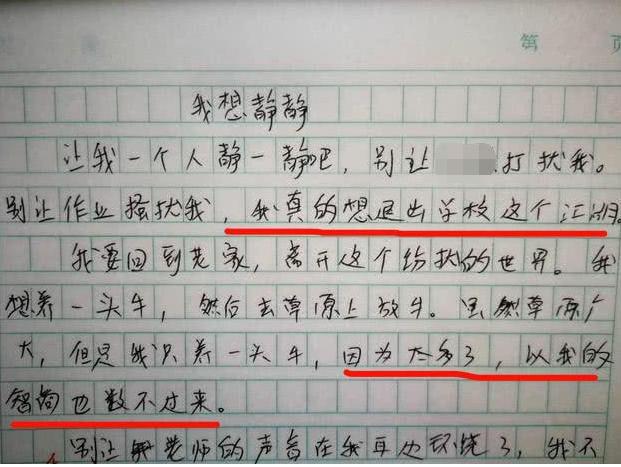 第 页
我想静静
让我一个人静一静吧，别让 打扰我。
别让作业骚扰我，我真的想退出学校这个江湖。
我要回到老家，离开这个纷扰的世界。我
想养一头牛，然后去草原上放牛。虽然草原广
大，但是我只养一头牛，因为太多了，以我的
智商也数不过来。
别让我老师的声音在我耳边环绕了，我不